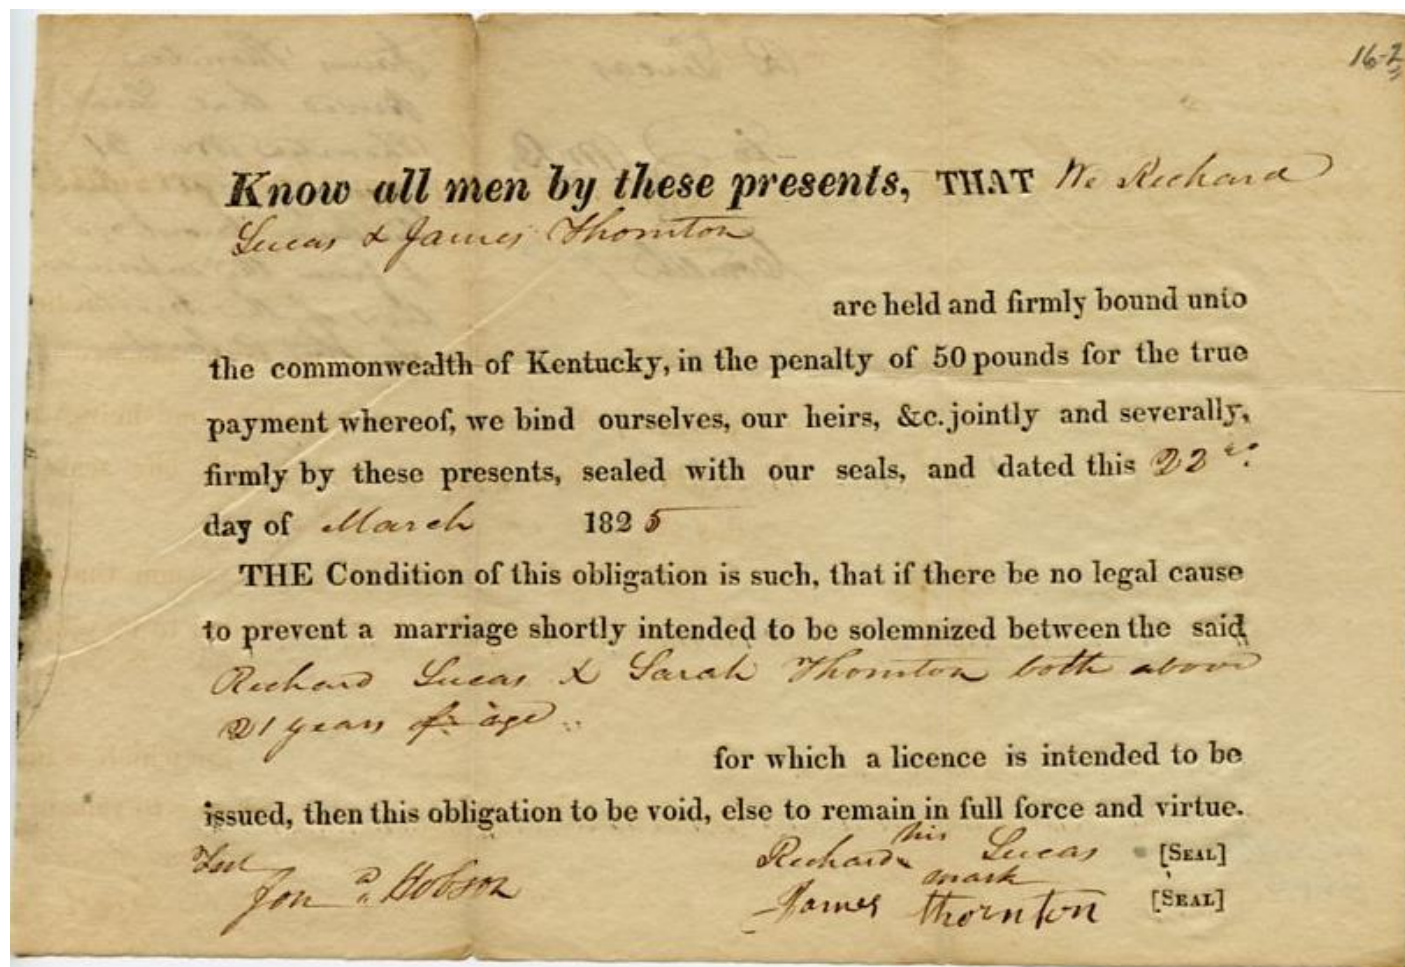 16-2
Know all men by these presents, THAT We Richard
Lucas & James Thornton
are held and firmly bound unto
the commonwealth of Kentucky, in the penalty of 50 pounds for the true
payment whereof, we bind ourselves, our heirs, &c. jointly and severally,
firmly by these presents, sealed with our seals, and dated this 22nd
day of March 1825
THE Condition of this obligation is such, that if there be no legal cause
to prevent a marriage shortly intended to be solemnized between the said
Richard Lucas & Sarah Thornton both above
21 years of age
for which a licence is intended to be
issued, then this obligation to be void, else to remain in full force and virtue.
his
Richard Lucas [SEAL]
mark
Test
Jon Hobson
James thornton [SEAL]